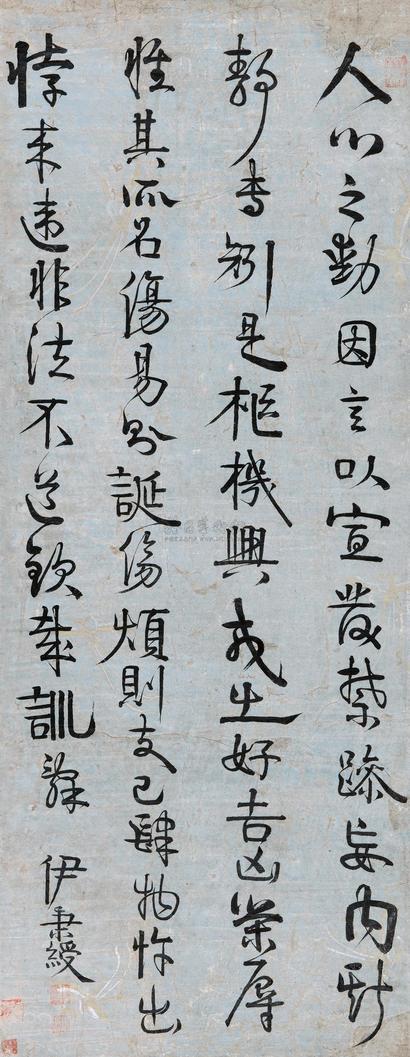 人心之動因言以宣發禁躁妄內斯
靜專矧是樞機興戎出好吉凶榮辱
惟其所召傷易則誕傷煩則支己肆物忤出
悖來違非法不道欽哉訓辭 伊秉綬